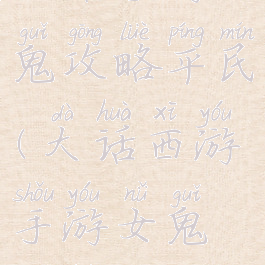 guǐ gōng lüè píng mín
鬼攻略平民
dà huà xī yóu
(大话西游
shǒu yóu nǚ guǐ
手游女鬼